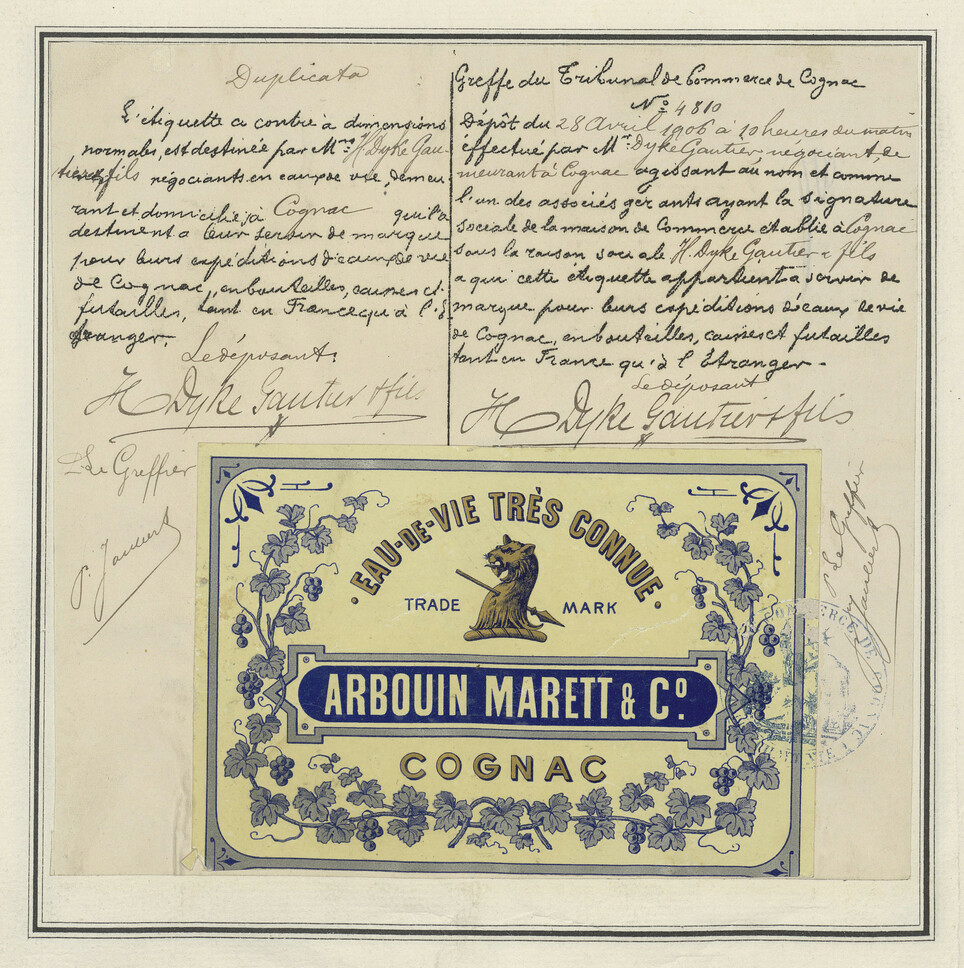 Duplicata
L'étiquette ci contre à dimensions
normales, est destinée par M^rs H. Dyke Gau-
tier & fils négociants en eaux de vie, demeu
rant et domicilié à Cognac qui la
destinent a leur servir de marque
pour leurs expéditions d'eaux de vie
de Cognac, en bouteilles, caisses et
futailles, tant en France qu'à l'É
tranger.
Le déposant.
H Dyke Gautier & fils
Le Greffier
Greffe du Tribunal de Commerce de Cognac
N° 4810
Dépôt du 28 Avril 1906 à 10 heures du matin
effectué par M^r Dyke Gautier négociant, de
meurant à Cognac agissant au nom et comme
l'un des associés gérants ayant la signature
sociale de la maison de Commerce établie à Cognac
sous la raison sociale H. Dyke Gautier & fils
a qui cette étiquette appartient a servir de
marque pour leurs expéditions d'eaux de vie
de Cognac, en bouteilles, caisses et futailles
tant en France qu'à l'Étranger -
Le déposant
H Dyke Gautier & fils
p Le Greffier
EAU-DE-VIE TRÈS CONNUE
TRADE MARK
ARBOUIN MARETT & Cº.
COGNAC